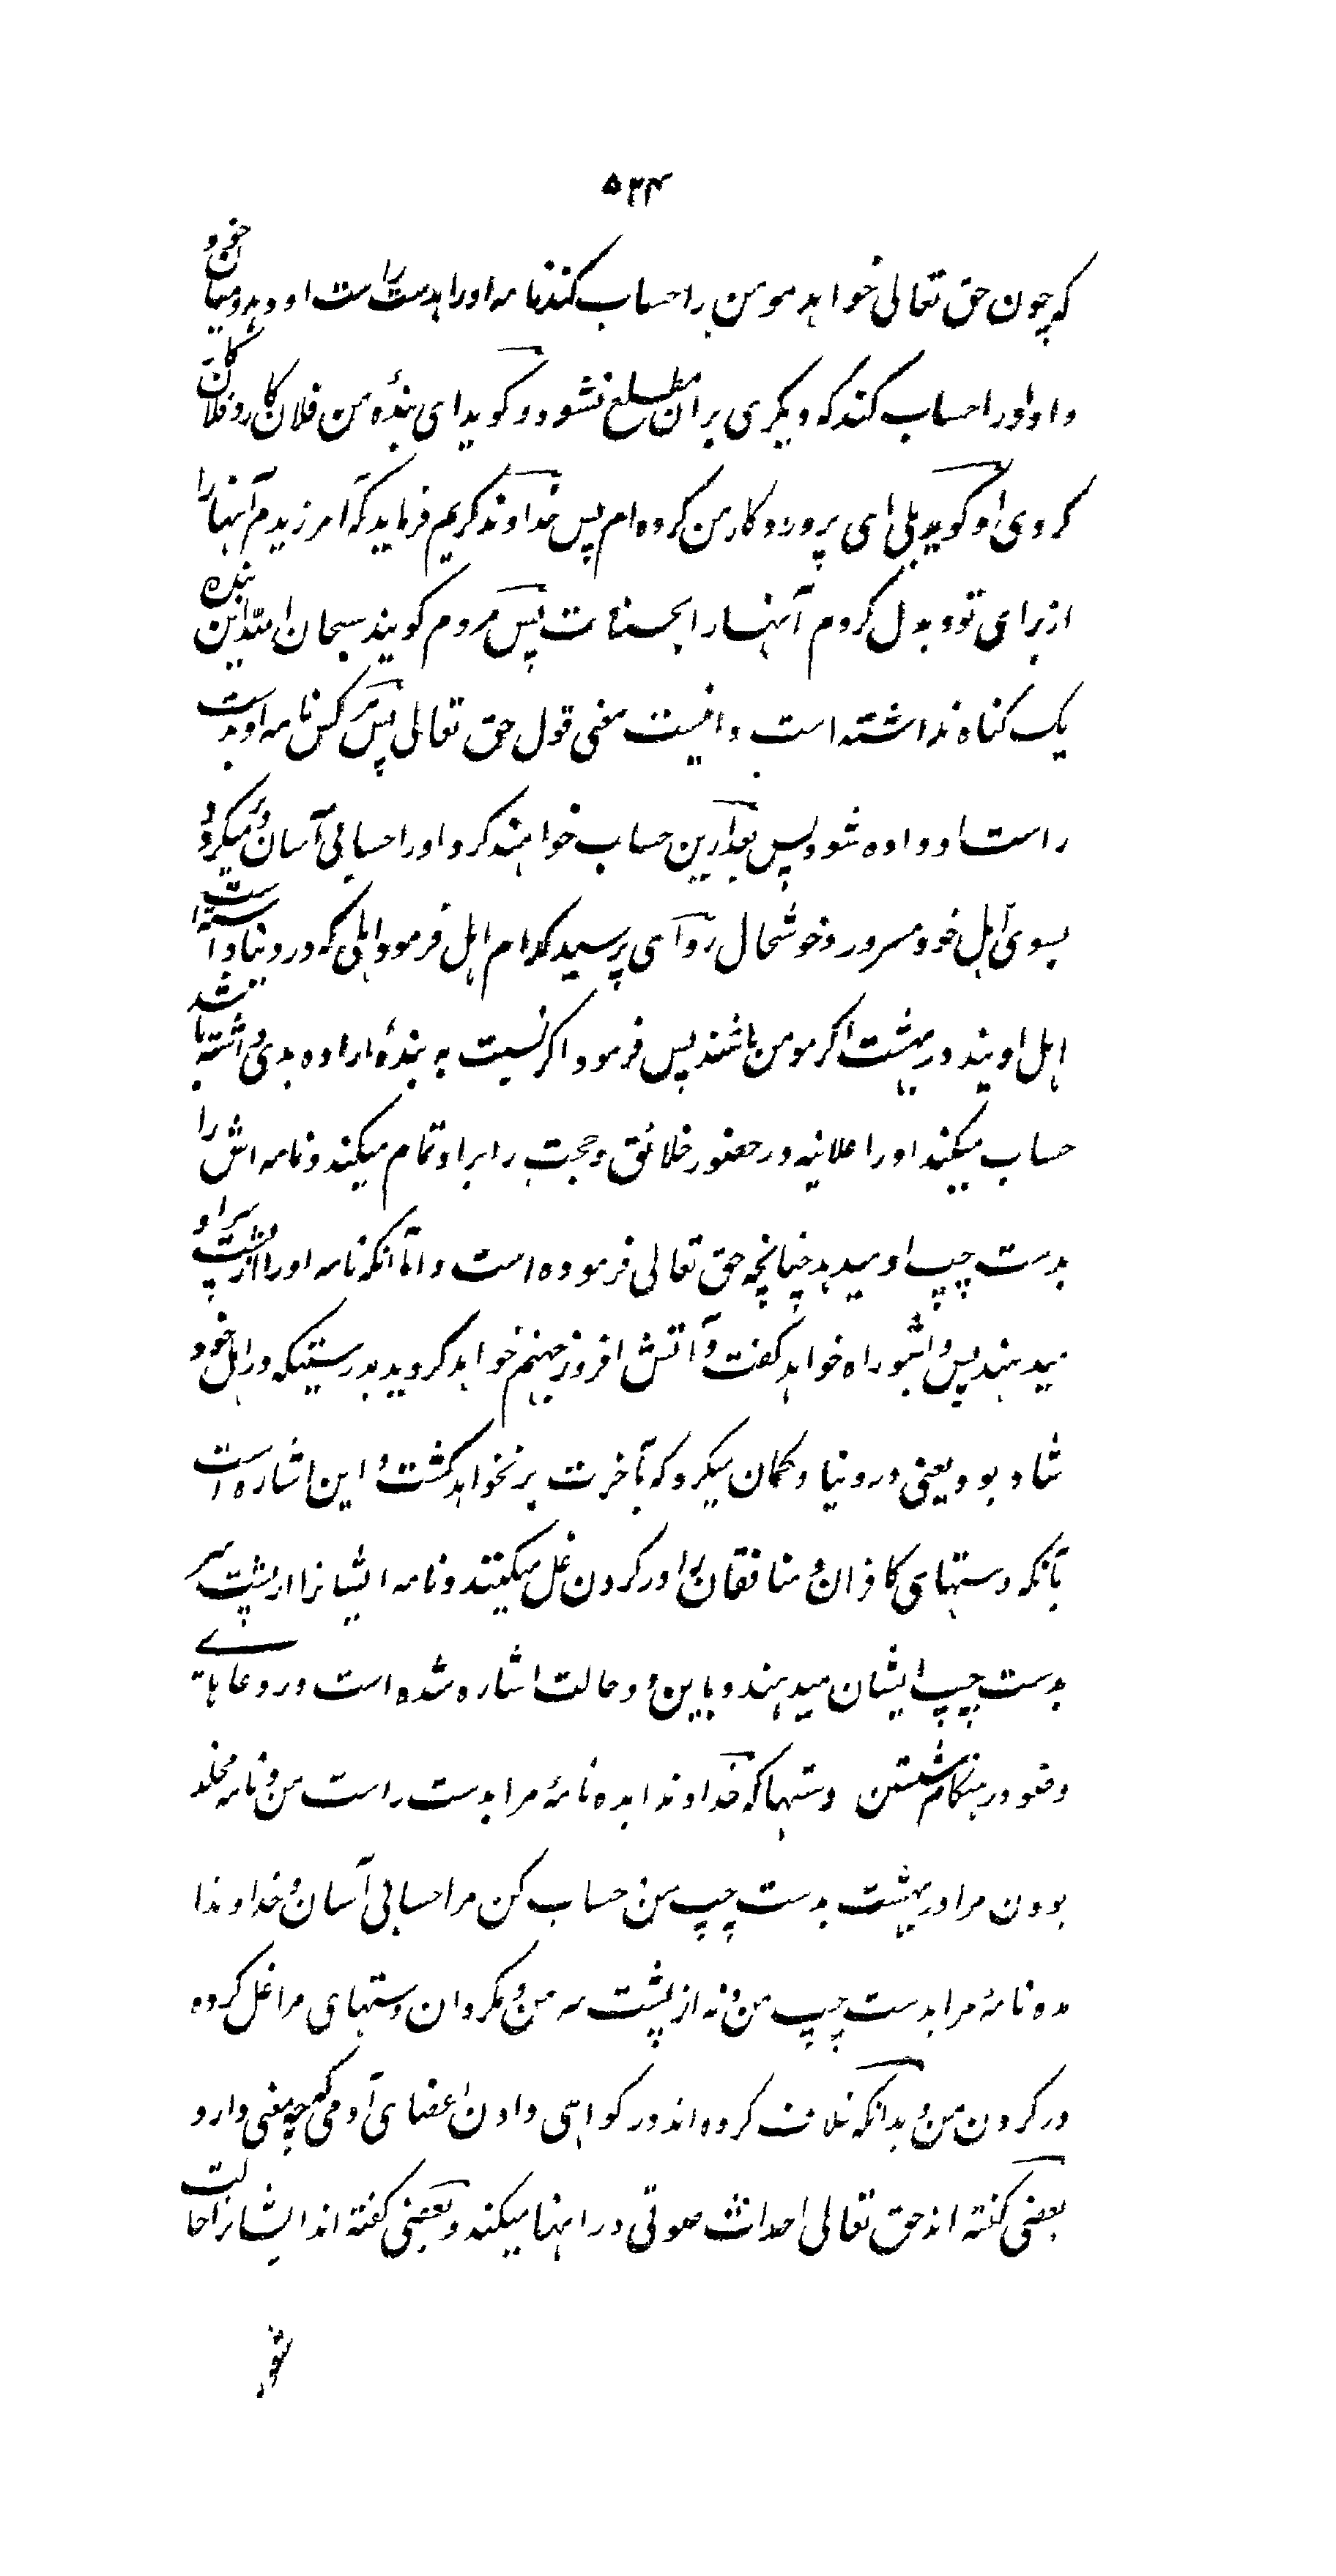 ۵۲۴
که چون حق تعالی خواهد مومن را حساب کند نامه اورا بدست راست او دهد و میان خود و
و او اورا حساب کند که دیگری بر آن مطلع نشود و گوید ای بندهٔ من فلان کار و فلان کار
کردی او گوید بلی ای پروردگار من کرده ام پس خداوند کریم فرماید که آمرزیدم آنها را
از برای تو و بدل کردم آنها را بحسنات پس مردم گویند سبحان الله این بنده
یک گناه نداشته است و اینست معنی قول حق تعالی پس هر کس نامه او بدست
راست او داده شود پس بعد ازین حساب خواهند کرد اورا حسابی آسان و میگردد
بسوی اهل خود مسرور و خوشحال راوی پرسید کدام اهل فرمود اهلی که در دنیا داشته است
اهل اویند در بهشت اگر مومن باشند پس فرمود اگر نسبت به بندهٔ اراده بدی داشته باشد
حساب میکند اورا علانیه در حضور خلائق و حجت را بر او تمام میکند و نامه اش را
بدست چپ او میدهد چنانچه حق تعالی فرموده است و اما آنکه نامه اورا از پشت سر او
میدهند پس واثبوراه خواهد گفت و آتش افروز جهنم خواهد گردید بدرستیکه در اهل خود
شاد بود یعنی در دنیا و گمان میکرد که بآخرت برنخواهد گشت و این اشاره است
بآنکه دستهای کافران و منافقان را در گردن غل میکنند و نامه ایشانرا از پشت سر
بدست چپ ایشان میدهند و باین دو حالت اشاره شده است در دعاهای
وضو در هنگام شستن دستها که خداوندا بده نامهٔ مرا بدست راست من و نامه مخلد
بودن مرا در بهشت بدست چپ من و حساب کن مرا حسابی آسان و خداوندا
مده نامهٔ مرا بدست چپ من و نه از پشت سر من و مگردان دستهای مرا غل کرده
در گردن من و بدانکه خلاف کرده اند در گواهی دادن اعضای آدمی که چه معنی دارد
بعضی گفته اند حق تعالی احداث صوتی در اینها میکند و بعضی گفته اند ایشانرا حالت
شعور